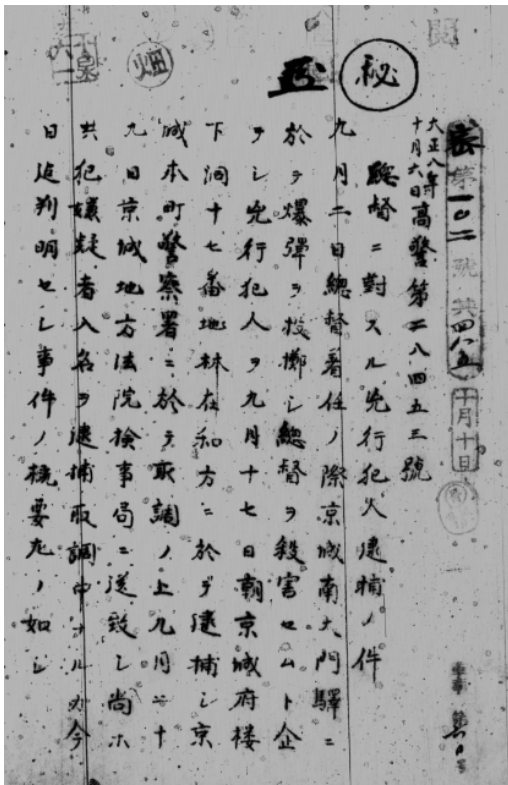 秘
畑
第一〇二號 共四八五
十月十日
大正八年
十月六日高警第二八四五三號
總督ニ對スル兇行犯人逮捕ノ件
九月二日總督着任ノ際京城南大門驛ニ
於テ爆彈ヲ投擲シ總督ヲ殺害セムト企
テシ兇行犯人ヲ九月十七日朝京城府樓
下洞十七番地林在和方ニ於テ逮捕シ京
城本町警察署ニ於テ取調ノ上九月二十
九日京城地方法院檢事局ニ送致シ尚ホ
共犯嫌疑者八名ヲ逮捕取調中ナルカ今
日迄判明セシ事件ノ概要左ノ如シ